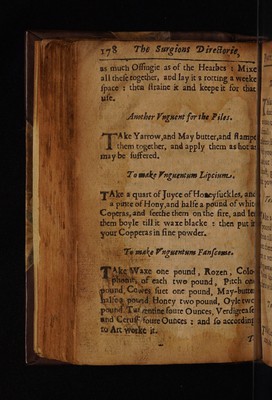 178 The Surgions Directorie,
as much Ossingie as of the Hearbes : Mixe
all these together, and lay it a rotting a weeke
space : then straine it and keepe it for that
use.
Another Vnguent for the Piles.
TAke Yarrow, and May butter, and stampe
them together, and apply them as hot as
may be suffered.
To make Vnguentum Lipcium.
TAke a quart of Juyce of Honeysuckles, and
a pinte of Hony, and halfe a pound of white
Coperas, and seethe them on the fire, and let
them boyle till it waxe blacke : then put it
your Copperas in fine powder.
To make Vnguentum
TAke Waxe one pound, Rozen, Colo-
phonie, of each two pound, Pitch on
pound, Cowes suet one pound, May-butte
halfe a pound, Honey two pound, Oyle two
pound, Turpentine foure Ounces, Verdigrease
and Ceruss foure Ounces : and so according
to Art worke it.